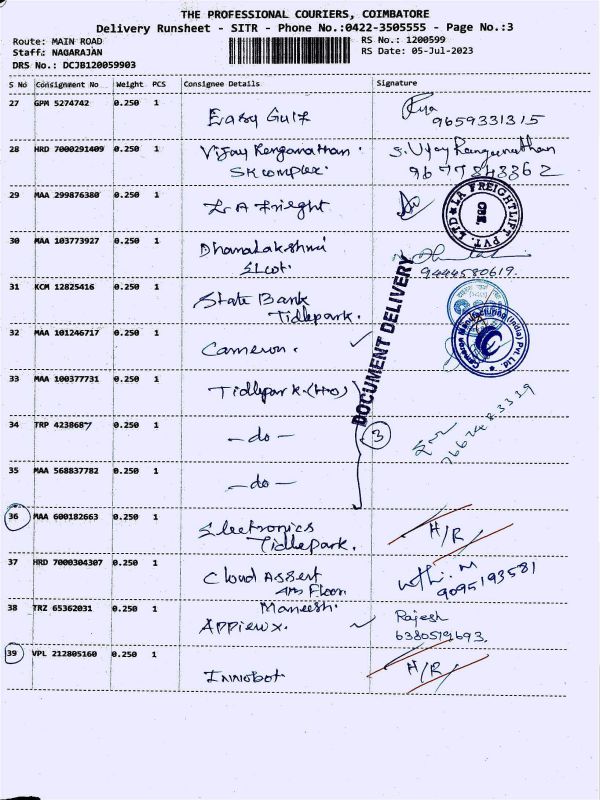 THE PROFESSIONAL COURIERS, COIMBATORE
Delivery Runsheet - SITR - Phone No.:0422-3505555 - Page No.:3
Route: MAIN ROAD
Staff: NAGARAJAN
DRS No.: DCJB120059903
RS No.: 1200599
RS Date: 05-Jul-2023
S No Consignment No Weight PCS Consignee Details Signature
27 GPM 5274742 0.250 1 Easy Gulf 9659331315
28 HRD 7000291409 0.250 1 Vijay Renganathan. S. Vijay Ranganathan
SK complex. 9677843362
29 MAA 299876380 0.250 1 LA Frieght
LA FREIGHTLIFT PVT. LTD CBE.
30 MAA 103773927 0.250 1 Dhanalakshmi
SLcot. 9444580619.
31 KCM 12825416 0.250 1 State Bank
Tidlepark.
32 MAA 101246717 0.250 1 Cameron.
Cameron Manufacturing (India) Pvt. Ltd.
DOCUMENT DELIVERY
33 MAA 100377731 0.250 1 Tidlepark. (Ho)
34 TRP 423868 1 0.250 1 - do - 3
35 MAA 568837782 0.250 1 - do -
36 MAA 600182663 0.250 1 Electronics H/R
Tidlepark.
37 HRD 7000304307 0.250 1 Cloud Assert 9095193581
4th Floor
38 TRZ 65362031 0.250 1 Maneesh. Rajesh
Appiewx. 6380519693.
39 VPL 212805160 0.250 1 Innobot H/R